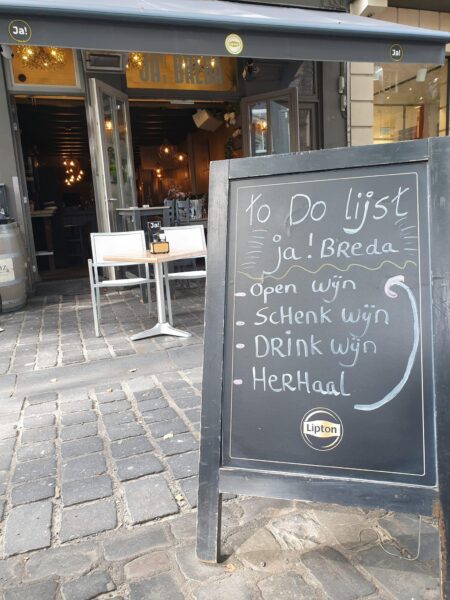 Ja!
Ja!
JA! BREDA
Ja!
to Do lijst
ja! BReda
- Open wijn
- SCHenK wijn
- DRinK wijn
- HeRHaal
Lipton